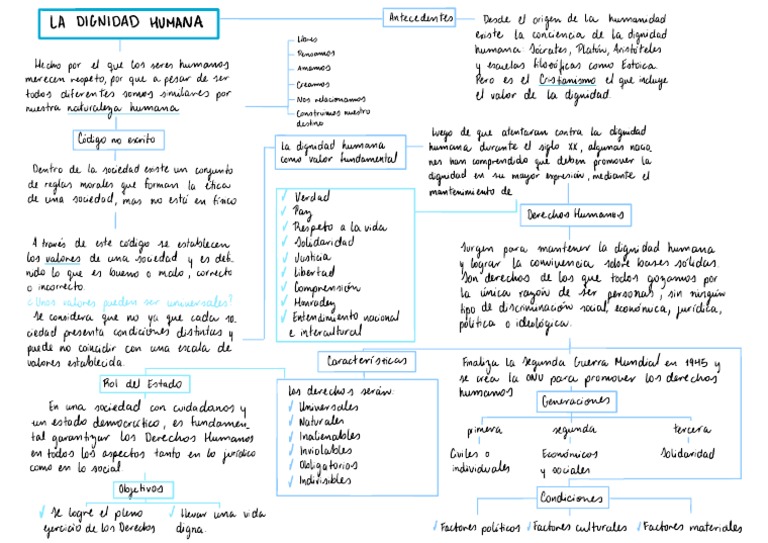 LA DIGNIDAD HUMANA
Hecho por el que los seres humanos
merecen respeto, por que a pesar de ser
todos diferentes somos similares por
nuestra naturaleza humana
Libres
Pensamos
Amamos
Creamos
Nos relacionamos
Construimos nuestro
destino
Antecedentes
Desde el origen de la humanidad
existe la conciencia de la dignidad
humana: Sócrates, Platón, Aristóteles
y escuelas filosóficas como Estoica.
Pero es el Cristianismo el que incluye
el valor de la dignidad.
Código no escrito
Dentro de la sociedad existe un conjunto
de reglas morales que forman la ética
de una sociedad, mas no está en físico
A través de este código se establecen
los valores de una sociedad y es defi-
nido lo que es bueno o malo, correcto
o incorrecto.
¿Unos valores pueden ser universales?
Se considera que no ya que cada so
ciedad presenta condiciones distintas y
puede no coincidir con una escala de
valores establecida.
La dignidad humana
como valor fundamental
✓ Verdad
✓ Paz
✓ Respeto a la vida
✓ Solidaridad
✓ Justicia
✓ Libertad
✓ Comprensión
✓ Honradez
✓ Entendimiento nacional
e intercultural
Luego de que atentaran contra la dignidad
humana durante el siglo XX, algunas nacio.
nes han comprendido que deben promover la
dignidad en su mayor expresión, mediante el
mantenimiento de
Derechos Humanos
Surgen para mantener la dignidad humana
y lograr la convivencia sobre bases sólidas.
Son derechos de los que todos gozamos por
la única razón de ser personas, sin ningún
tipo de discriminación social, económica, jurídica,
política o ideológica.
Finaliza la Segunda Guerra Mundial en 1945 y
se crea la ONU para promover los derechos
humanos
Rol del Estado
En una sociedad con cuidadanos y
un estado democrático, es fundamen-
tal garantizar los Derechos Humanos
en todos los aspectos tanto en lo jurídico
como en lo social.
Objetivos
✓ Se logre el pleno
ejercicio de los Derechos
✓ Llevar una vida
digna.
Características
Los derechos serán:
✓ Universales
✓ Naturales
✓ Inalienables
✓ Inviolables
✓ Obligatorios
✓ Indivisibles
Generaciones
primera
Civiles o
individuales
segunda
Económicos
y sociales
tercera
Solidaridad
Condiciones
✓ Factores políticos
✓ Factores culturales
✓ Factores materiales